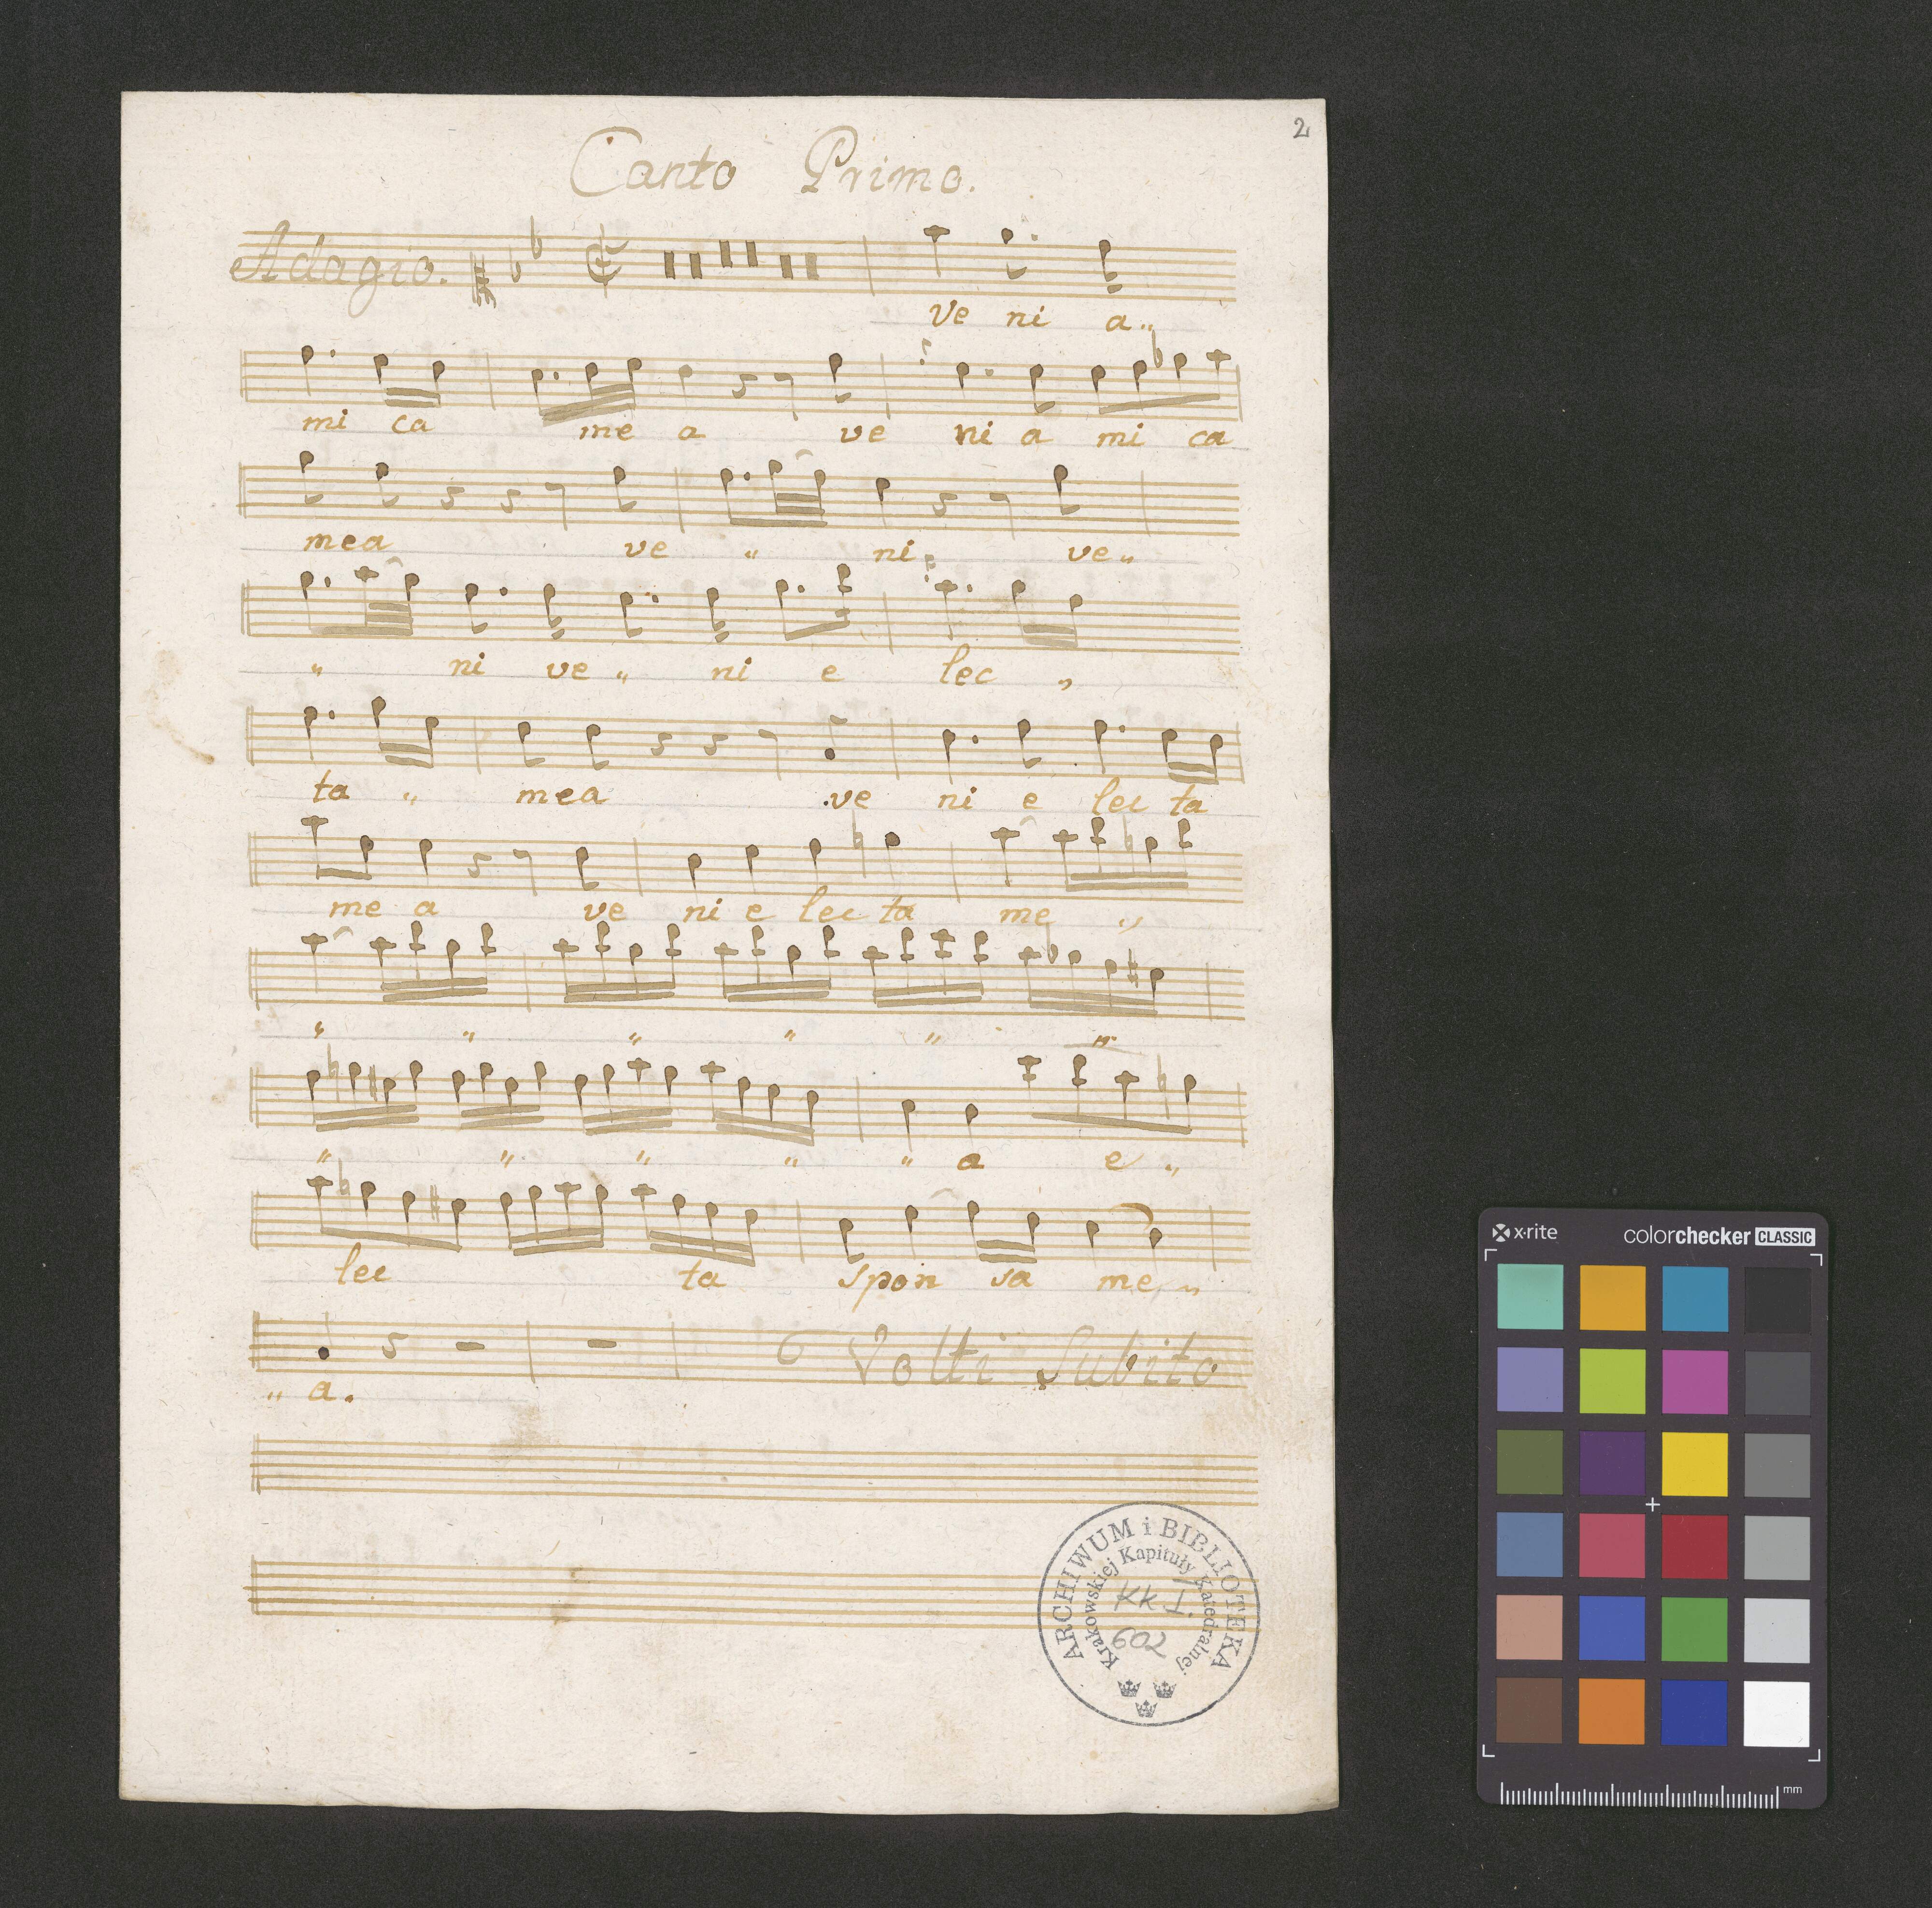 2
Canto Primo.
Adagio.
Ve ni a„
mi ca me a ve ni a mi ca
mea ve „ ni ve„
„ ni ve „ ni e lec „
ta „ mea ve ni e lec ta
me a ve ni e lec ta me „
„ „ „ „ „ „
„ „ „ „ „ a e „
lec ta spon sa me „
„ a.
Volti Subito
ARCHIWUM i BIBLIOTEKA
Krakowskiej Kapituły Katedralnej
KK I.
602
x-rite colorchecker CLASSIC
mm